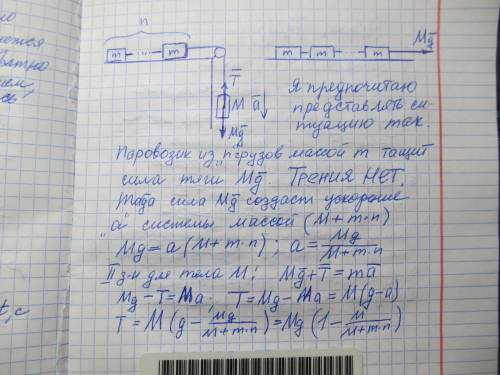 n
m ... m
T
M a
Mg
m m ... m Mg
Я предпочитаю
представлять си-
туацию так.
Паровозик из "n" грузов массой m тащит
сила тяги Mg. Трения НЕТ.
Тогда сила Mg создаст ускорение
"a" системы массой (M+m·n)
Mg=a(M+m·n); a=Mg/M+m·n
II з-н для тела M: Mg+T=ma
Mg-T=Ma; T=Mg-Ma=M(g-a)
T=M(g-Mg/M+m·n)=Mg(1-M/M+m·n)
t,c